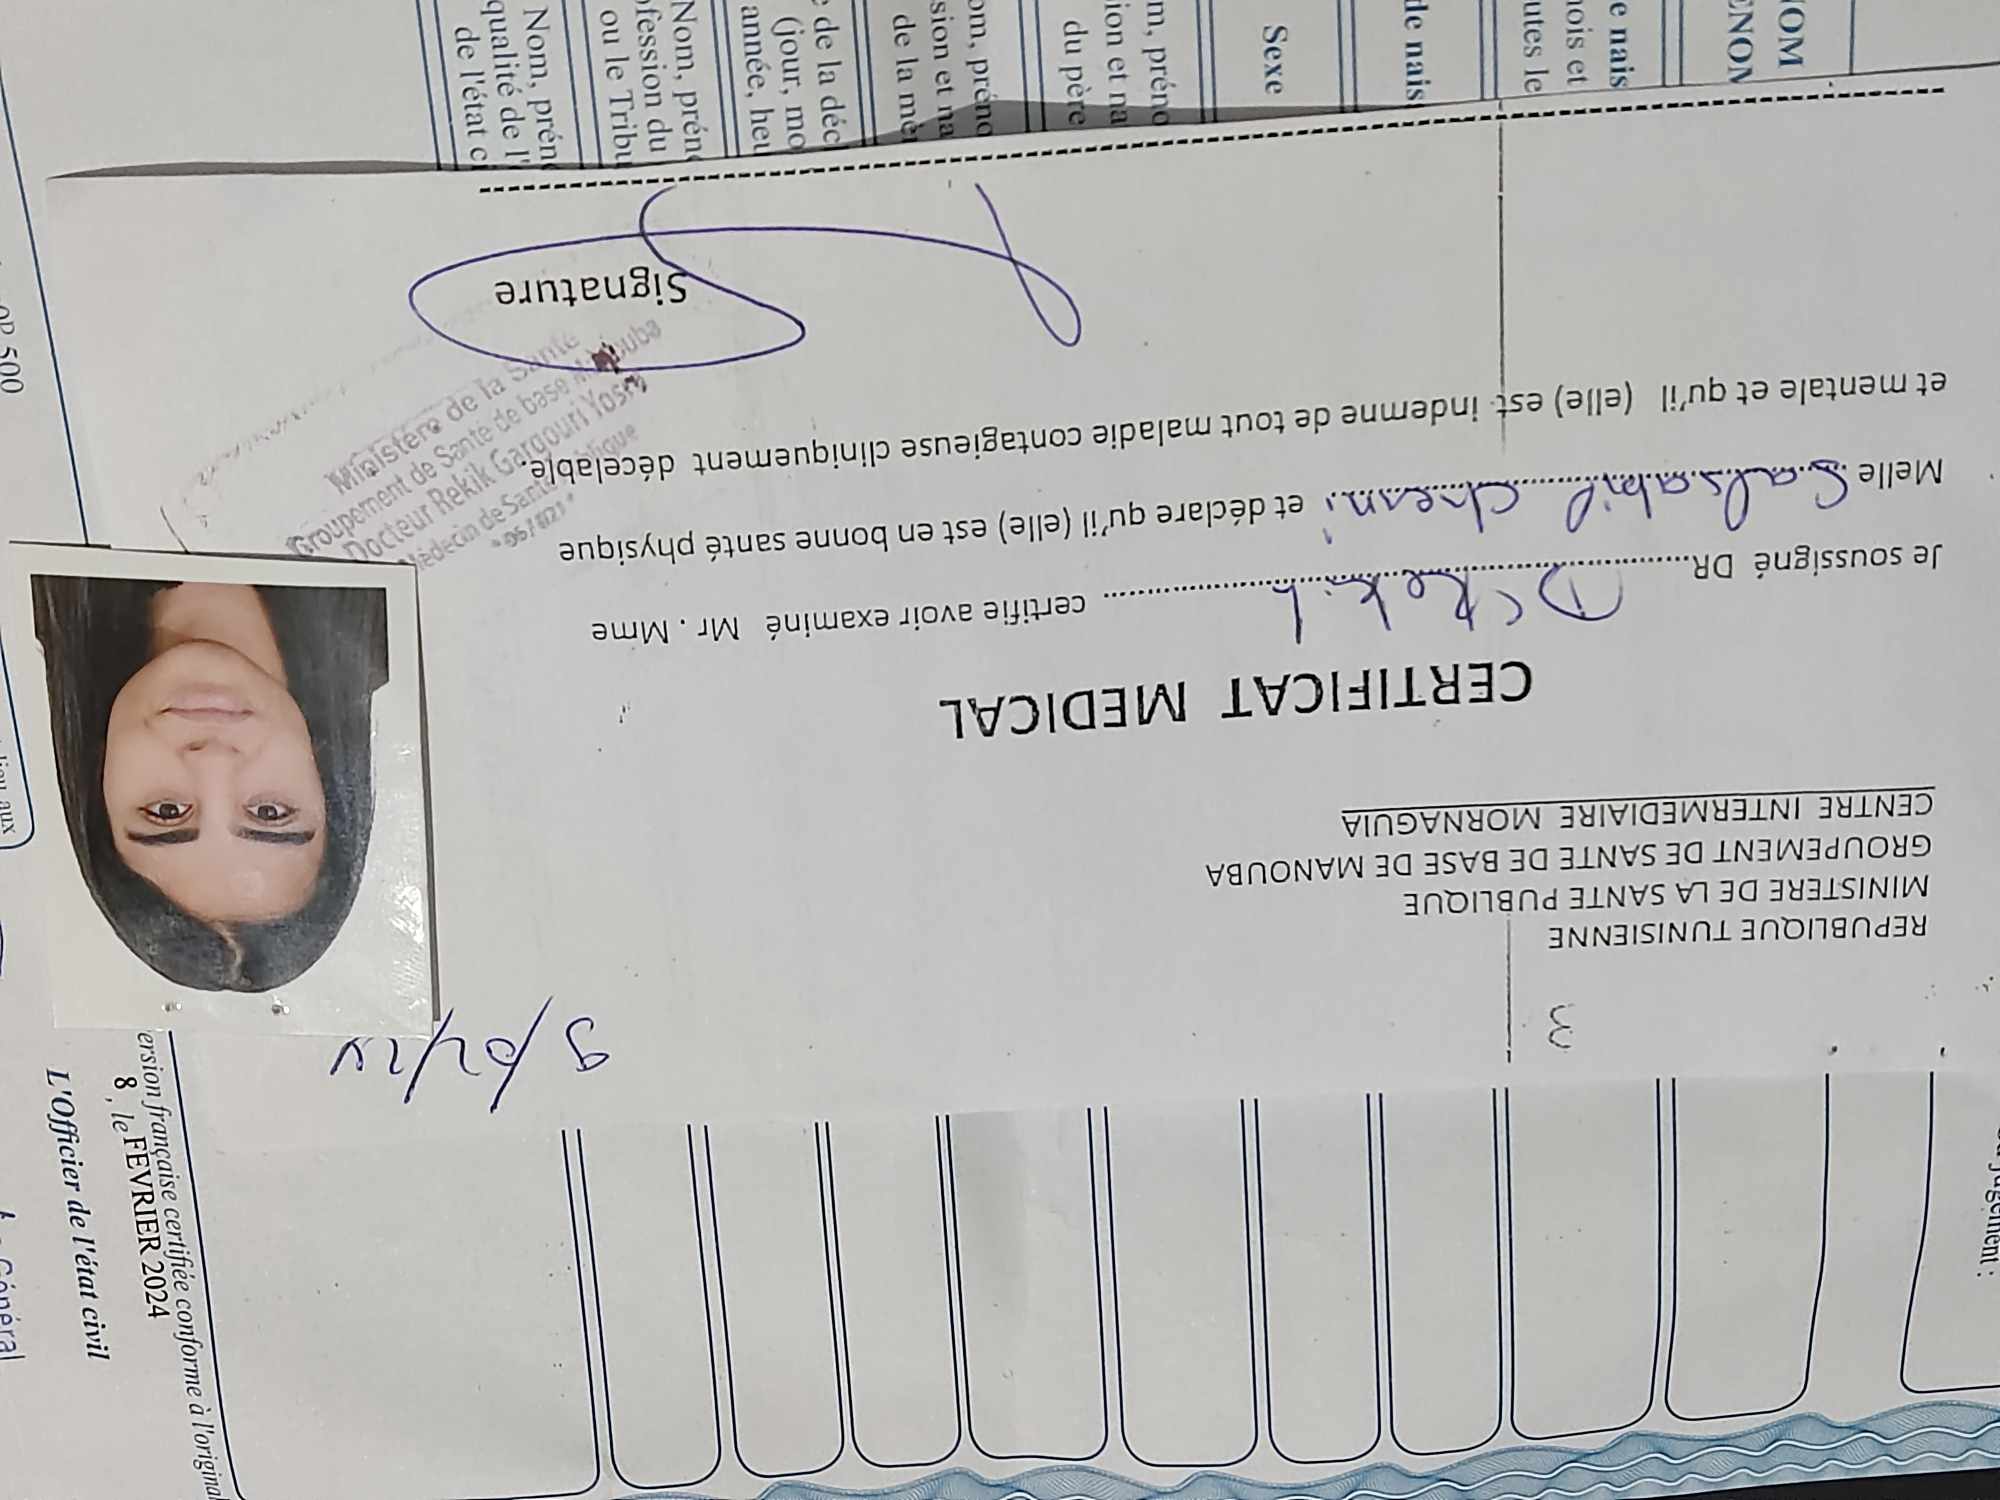 9/02/24
3
REPUBLIQUE TUNISIENNE
MINISTERE DE LA SANTE PUBLIQUE
GROUPEMENT DE SANTE DE BASE DE MANOUBA
CENTRE INTERMEDIAIRE MORNAGUIA
CERTIFICAT MEDICAL
Je soussigné DR............ Dr Rekik ............ certifie avoir examiné Mr . Mme
Melle Salsabil Chesni et déclare qu'il (elle) est en bonne santé physique
et mentale et qu'il (elle) est indemne de tout maladie contagieuse cliniquement décelable.
Ministère de la Santé
Groupement de Santé de base Manouba
Docteur Rekik Gargouri Yosra
Médecin de Santé Publique
Signature
NOM
ENOM
e nais
mois et
utes le
de nais
Sexe
m, préno
ion et na
du père
om, préno
sion et na
de la mèr
e de la décl
(jour, mo
année, heu
Nom, préno
ofession du
ou le Tribu
Nom, préno
qualité de l'
de l'état ci
ersion française certifiée conforme à l'original
8, le FEVRIER 2024
L'Officier de l'état civil
jugement :
Général
OP 500
lieu aux